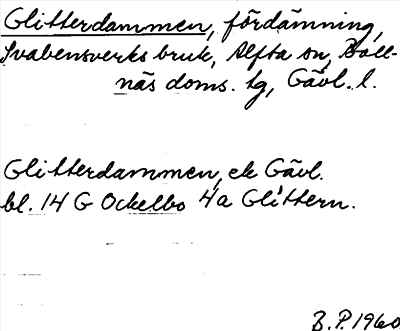 Glitterdammen, fördämning,
Svabensverks bruk, Alfta sn, Boll-
näs doms. tg, Gävl. l.
Glitterdammen, ek Gävl.
bl. 14 G Ockelbo 4a Glittern.
B.P. 1960